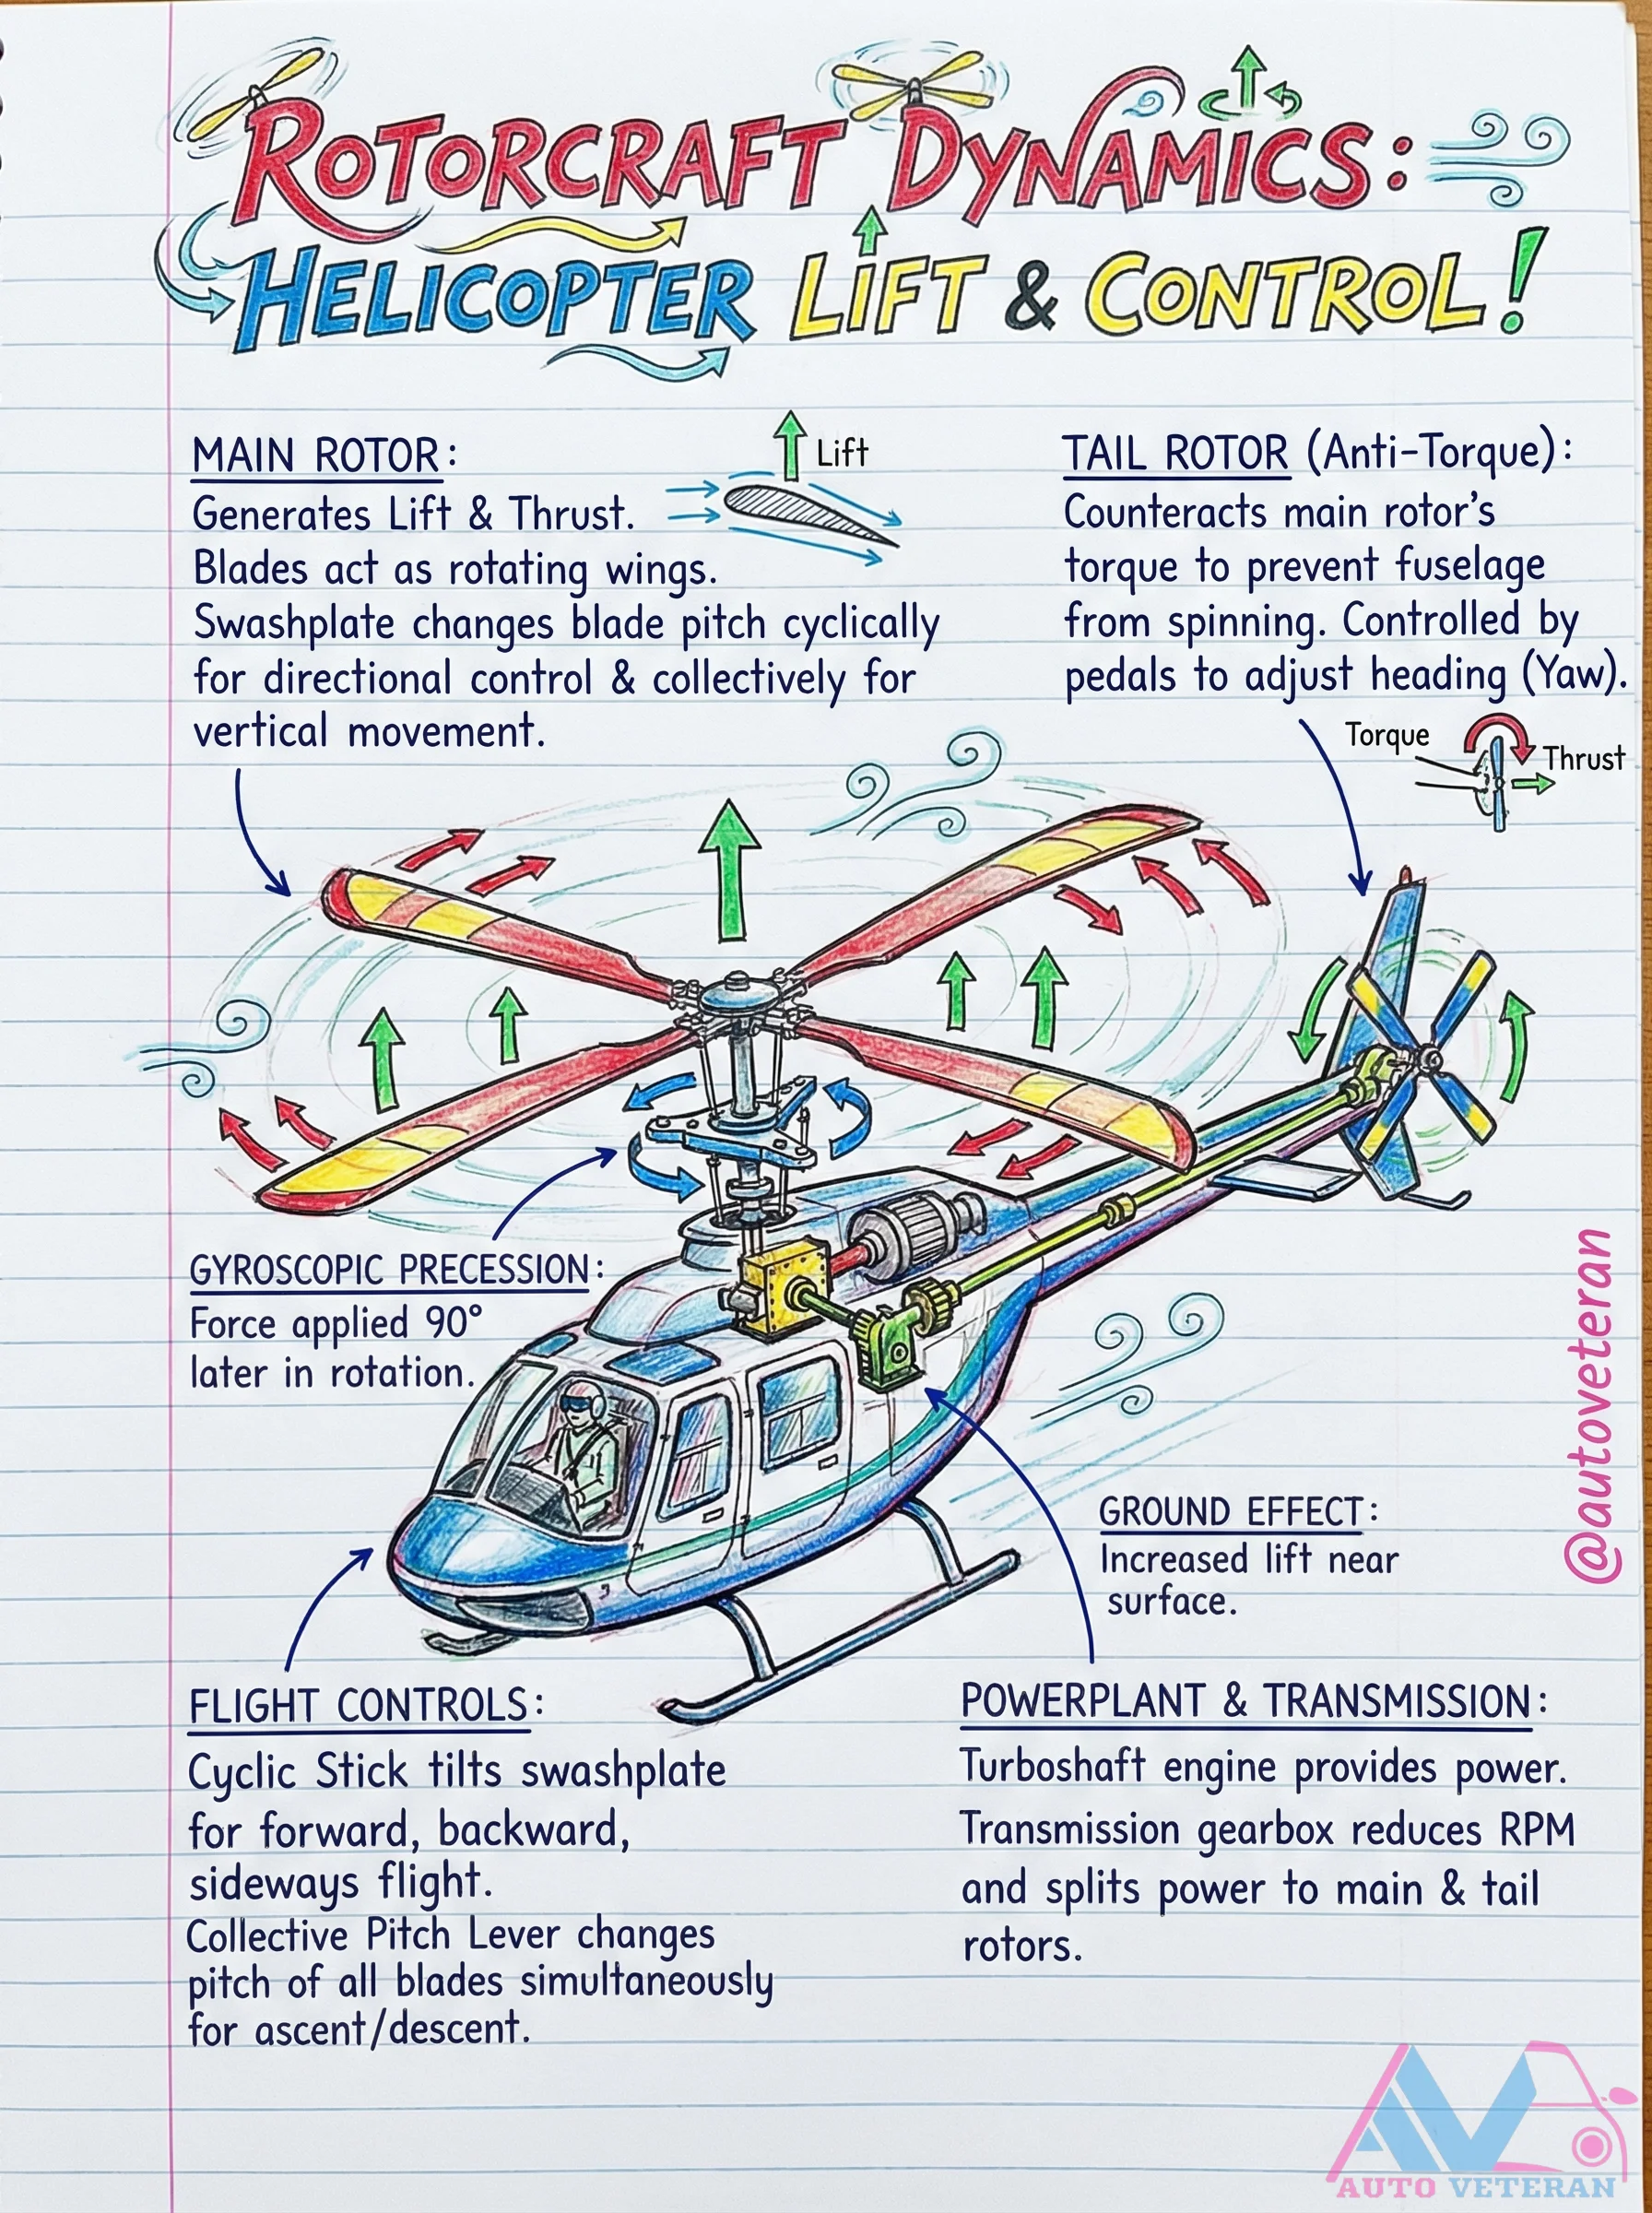 ROTORCRAFT DYNAMICS:
HELICOPTER LIFT & CONTROL!
MAIN ROTOR:
Generates Lift & Thrust.
Blades act as rotating wings.
Swashplate changes blade pitch cyclically
for directional control & collectively for
vertical movement.
Lift
TAIL ROTOR (Anti-Torque):
Counteracts main rotor's
torque to prevent fuselage
from spinning. Controlled by
pedals to adjust heading (Yaw).
Torque
Thrust
GYROSCOPIC PRECESSION:
Force applied 90°
later in rotation.
@autoveteran
GROUND EFFECT:
Increased lift near
surface.
FLIGHT CONTROLS:
Cyclic Stick tilts swashplate
for forward, backward,
sideways flight.
Collective Pitch Lever changes
pitch of all blades simultaneously
for ascent/descent.
POWERPLANT & TRANSMISSION:
Turboshaft engine provides power.
Transmission gearbox reduces RPM
and splits power to main & tail
rotors.
AV
AUTO VETERAN